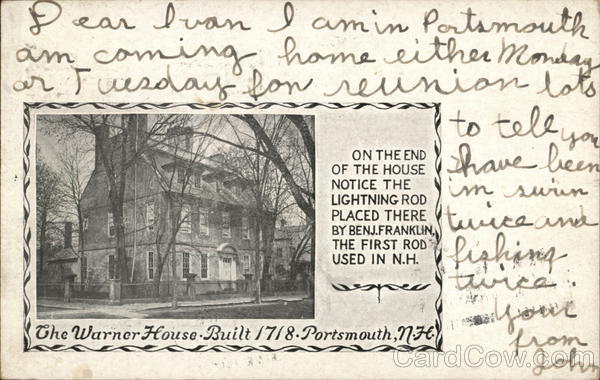 Dear Ivan I am in Portsmouth
am coming home either Monday
or Tuesday for reunion lots
to tell you
I have been
in swim
twice and
fishing
twice.
Your
from
John
ON THE END
OF THE HOUSE
NOTICE THE
LIGHTNING ROD
PLACED THERE
BY BENJ. FRANKLIN,
THE FIRST ROD
USED IN N.H.
The Warner House. Built 1718. Portsmouth, N.H.
CardCow.com